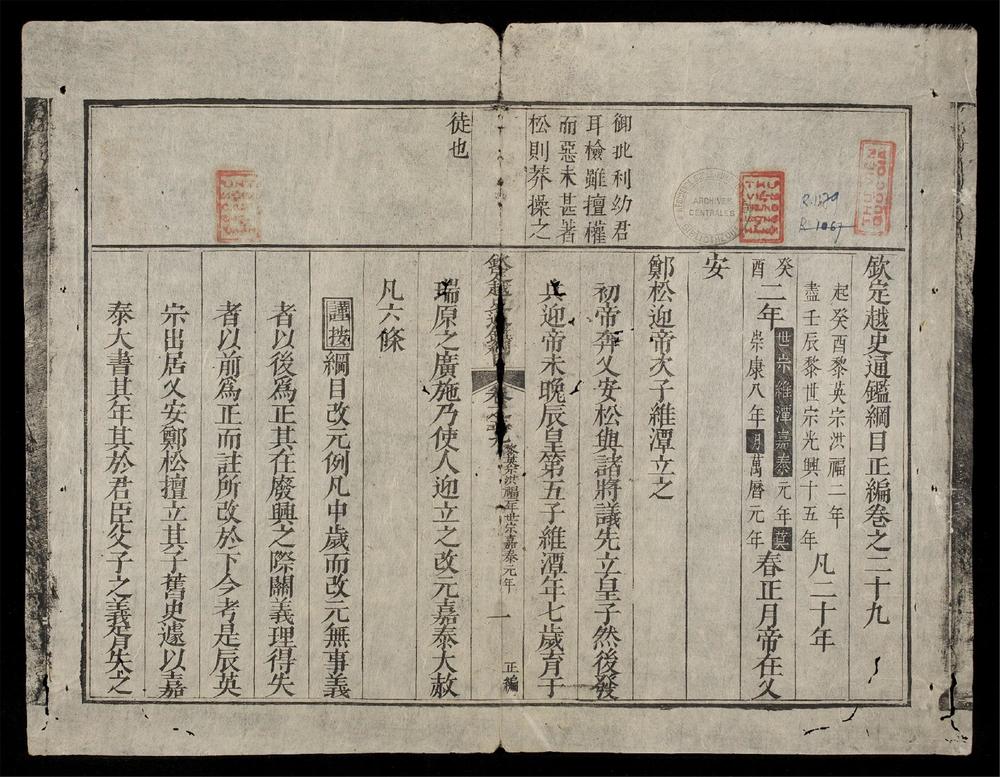 欽定越史通鑑綱目正編卷之二十九
起癸酉黎英宗洪福二年
盡壬辰黎世宗光興十五年
凡二十年
癸酉
二年
世宗維潭嘉泰元年莫
崇康八年明萬曆元年
春正月帝在乂
安
鄭松迎帝次子維潭立之
初帝奔乂安松與諸將議先立皇子然後發
兵迎帝未晚辰皇第五子維潭年七歲育于
欽定越史通鑑綱目
卷之二十九
黎英宗洪福二年世宗嘉泰元年
一
正編
瑞原之廣施乃使人迎立之改元嘉泰大赦
凡六條
謹按綱目改元例凡中歲而改元無事義
者以後爲正其在廢興之際關義理得失
者以前爲正而註所改於下今考是辰英
宗出居乂安鄭松擅立其子舊史遽以嘉
泰大書其年其於君臣父子之義胥失之
御批利幼君
耳檢雖擅權
而惡未甚著
松則莽操之
徒也
ARCHIVES
CENTRALES
R.1629
R.1067
THU VIEN
QUOC GIA